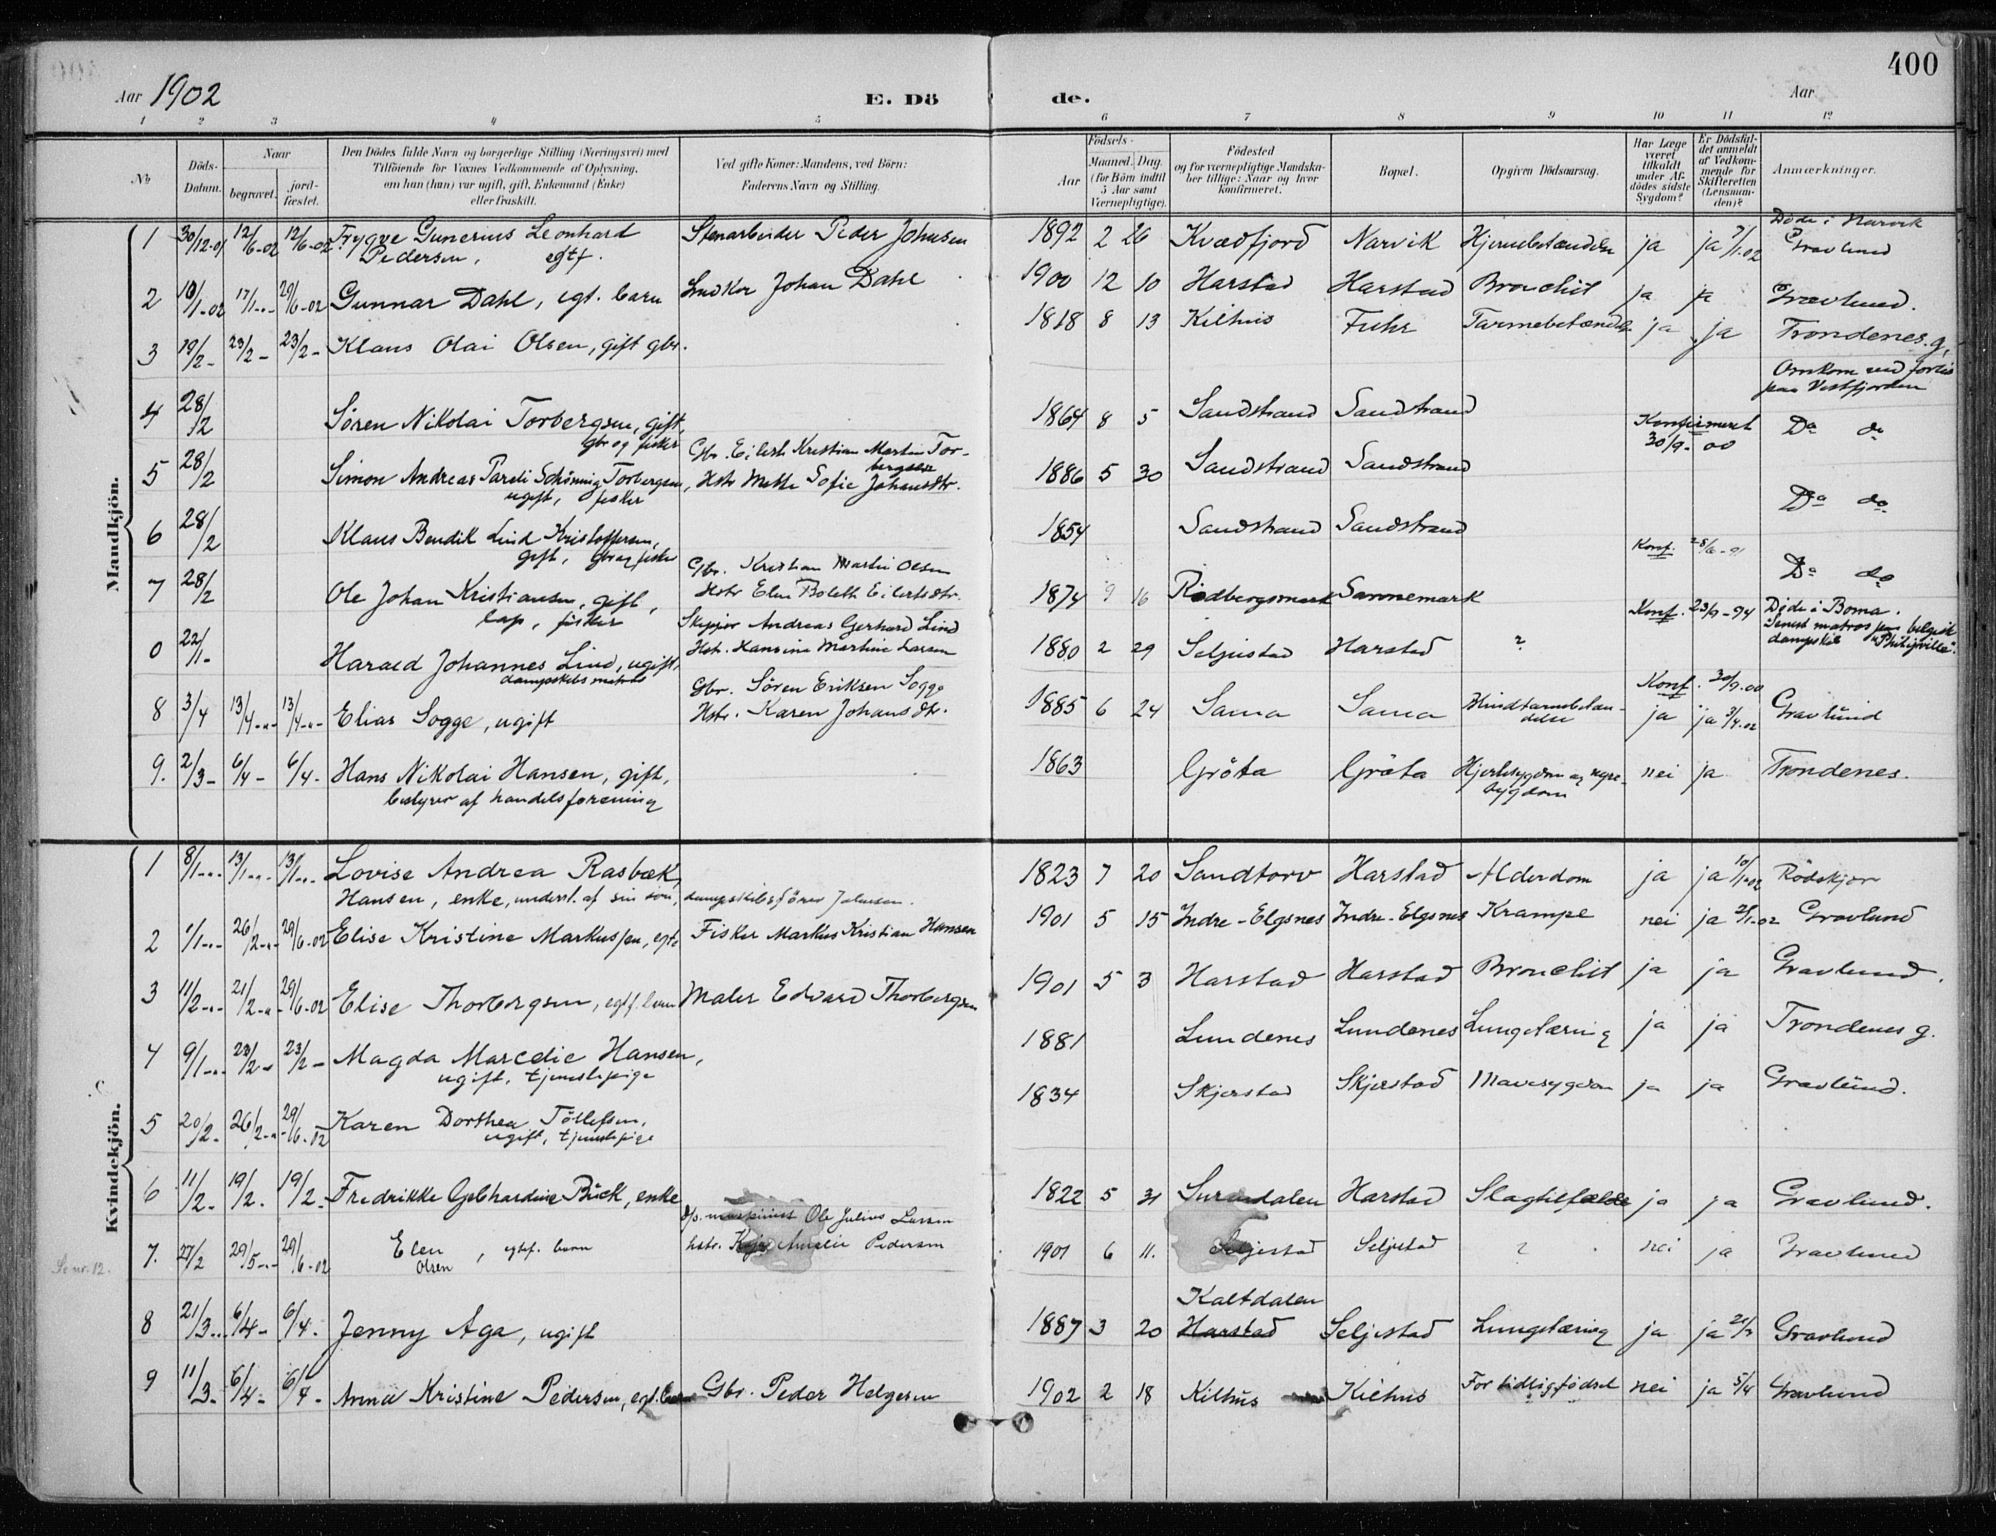 400
Aar 1902
E. Dö de.
Aar
1 2 3 4 5 6 7 8 9 10 11 12
No
Döds-Datum.
Naar begravet. jordfæstet.
Den Dödes fulde Navn og borgerlige Stilling (Næringsvei) med
Tilföiende for Voxnes Vedkommende af Oplysning,
om han (hun) var ugift, gift, Enkemand (Enke)
eller fraskilt.
Ved gifte Koner: Mandens, ved Börn:
Faderens Navn og Stilling.
Födsels-
Aar Maaned. Dag.
(for Börn indtil 5 Aar samt Værnepligtige).
Födested
og for værnepligtige Mandskaber tillige: Naar og hvor Konfirmeret.
Bopæl.
Opgiven Dödsaarsag.
Har Læge været tilkaldt under Afdödes sidste Sygdom?
Er Dödsfaldet anmeldt af Vedkommende for Skifteretten (Lensmanden)?
Anmærkninger.
Mandkjön.
1 30/12-01 12/6-02 12/6-02 Trygve Gunerius Leonhard Stenarbeider Peder Johnsen 1892 2 26 Kvædfjord Narvik Hjernebetændelse ja ja 7/1-02 Döde i Narvik
Pedersen, egtf. Gravlund
2 10/1-02 17/1-"- 29/6-02 Gunnar Dahl, egt. barn Snedker Johan Dahl 1900 12 10 Harstad Harstad Bronchit ja ja Gravlund.
3 19/2- 23/2- 23/2- Klaus Olai Olsen, gift gbr. 1818 8 13 Kilhus Fuhr Tarmebetændelse ja ja Trondenes g,
Omkom ved forlis
paa Vestfjorden
4 28/2 Sören Nikolai Torbergsen, gift, 1864 8 5 Sandstrand Sandstrand Do do
gbr og fisker
Konfirmeret
30/9-00
5 28/2 Simon Andreas Pareli Schöning Torbergsen, Gbr. Eilert Kristian Martin Torbergsen 1886 5 30 Sandstrand Sandstrand Do do
ugift, fisker Hstr Mette Sofie Johansdtr.
6 28/2 Klaus Bendik Lind Kristoffersen, 1854 Sandstrand Sandstrand Do do
gift, gbr og fisker
Konf. 28/6-91
7 28/2 Ole Johan Kristiansen, gift, Gbr. Kristian Martin Olsen 1874 9 16 Rodbergsmark Sannemark
lap, fisker Hstr Elen Boleth Eilertsdtr.
Konf. 23/9-94 Döde i Boma.
0 22/1- Harald Johannes Lind, ugift, Skipper Andreas Gerhard Lind 1880 2 29 Seljestad Harstad ?
dampskibsmatros Hstr. Hansine Martine Larsen
matros paa belgisk
dampskib "Philipville".
Konf. 30/9.00
8 3/4 13/4-"- 13/4-"- Elias Sogge, ugift Gbr. Sören Eriksen Sogge 1885 6 24 Sama Sama Blindtarmbetændelse ja ja 3/4-02 Gravlund
Hstr. Karen Johansdtr.
9. 2/3- 6/4- 6/4- Hans Nikolai Hansen, gift, 1863 Gröta Gröta Hjertesygdom og nyresygdom nei ja Trondenes.
bestyrer af handelsforening
Kvindekjön.
1 8/1-"- 13/1-"- 13/1-"- Lovise Andrea Rasbæk, 1823 7 20 Sandtorv Harstad Alderdom ja ja 10/1-02 Rödskjær
Hansen, enke, underst. af sin sön, dampskibsförer Johnsen.
2 1/1-"- 26/2-"- 29/6-02 Elise Kristine Markussen, egte Fisker Markus Kristian Hansen 1901 5 15 Indre-Elgsnes Indre-Elgsnes Krampe nei ja 2/1-02 Gravlund
3 11/2-"- 21/2-"- 29/6-02 Elise Thorbergsen, egtf. barn Maler Edvard Thorbergsen 1901 5 3 Harstad Harstad Bronchit ja ja Gravlund.
4 9/1-"- 23/2- 23/2- Magda Marcelie Hansen, 1881 Lundenes Lundenes Lungetæring ja ja Trondenes g.
ugift, tjenestepige
5 20/2- 26/2-"- 29/6-02 Karen Dorthea Töllefsen, 1834 Skjerstad Skjerstad Mavesygdom ja ja Gravlund.
ugift, tjenestepige
6 11/2- 19/2- 19/2- Fredrikke Gebhardine Bück, enke 1822 5 31 Surendalen Harstad Slagtilfælde ja ja Gravlund.
7. 27/2 29/5-"- 29/6-02 Elen Olsen, egtf. barn D/s. maskinist Ole Julius Larsen 1901 6 11. Seljestad Seljestad ? nei ja Gravlund
hstr. Kaja Amelie Pedersen
Se nr. 12.
8 21/3-"- 6/4- 6/4- Jenny Aga, ugift 1887 3 20 Kaltdalen Harstad Seljestad Lungetæring ja ja 21/3 Gravlund
9 11/3- 6/4- 6/4- Anna Kristine Pedersen, egt. barn Gbr. Peder Helgesen 1902 2 18 Kilhus Kilhus For tidlig födsel nei ja 5/4 Gravlund